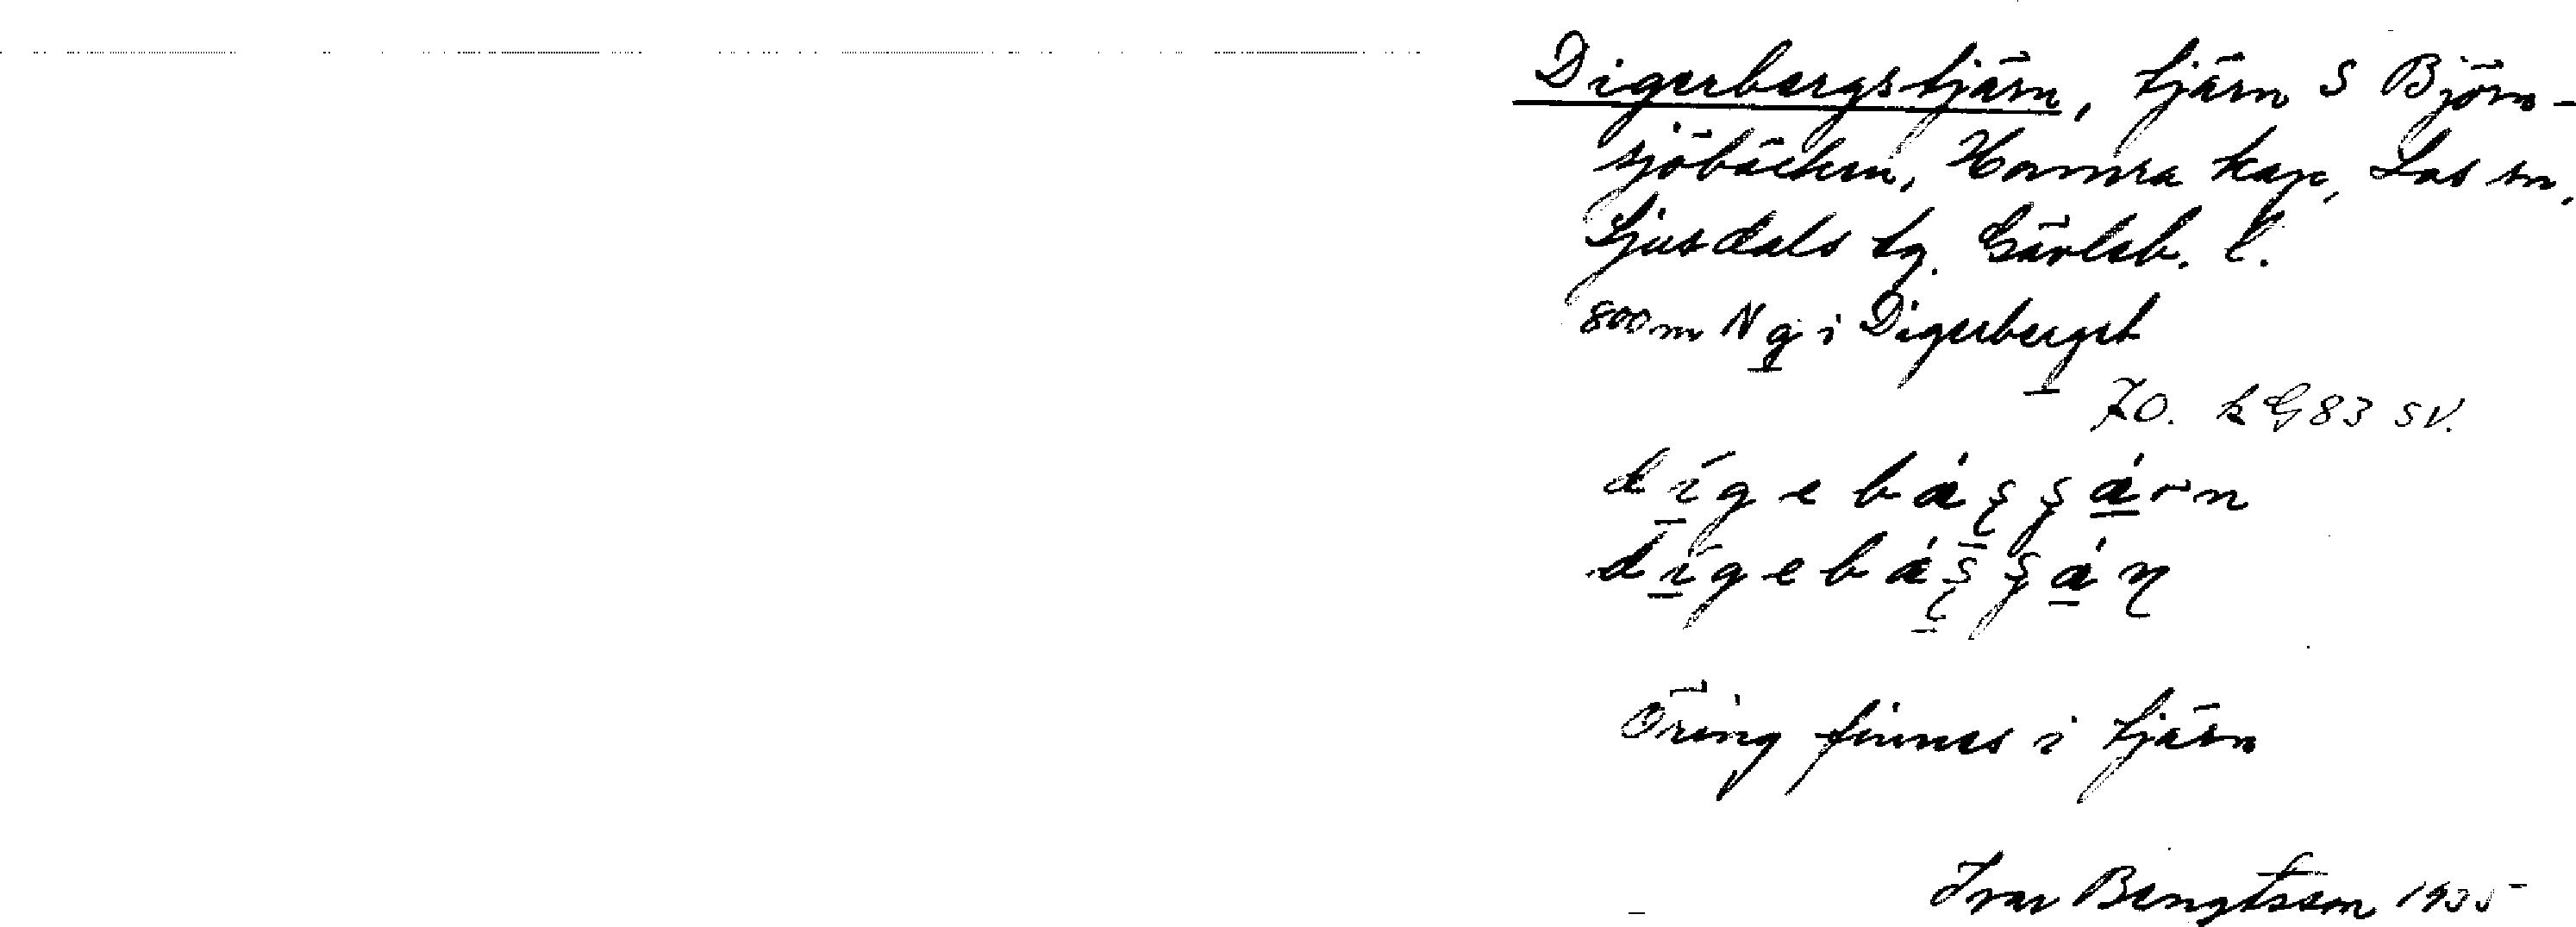 Digerbergstjärn, tjärn S Björn-
sjöbäcken, Hamra kap, Los sn,
Ljusdals tg. Gävleb. l.
800 m N g i Digerberget
70. k G 83 SV.
Öring finnes i tjärn
Ivar Bengtsson 1935